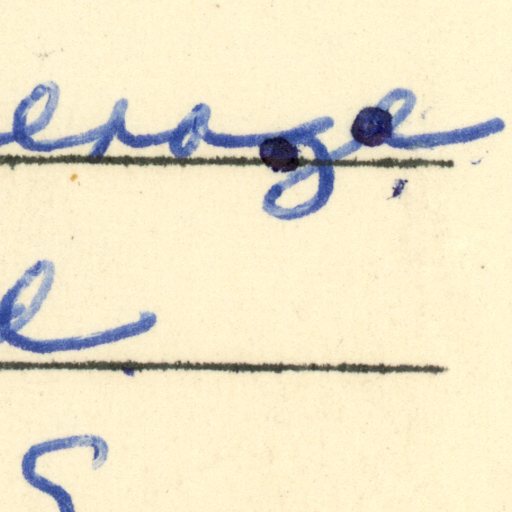 erage
e